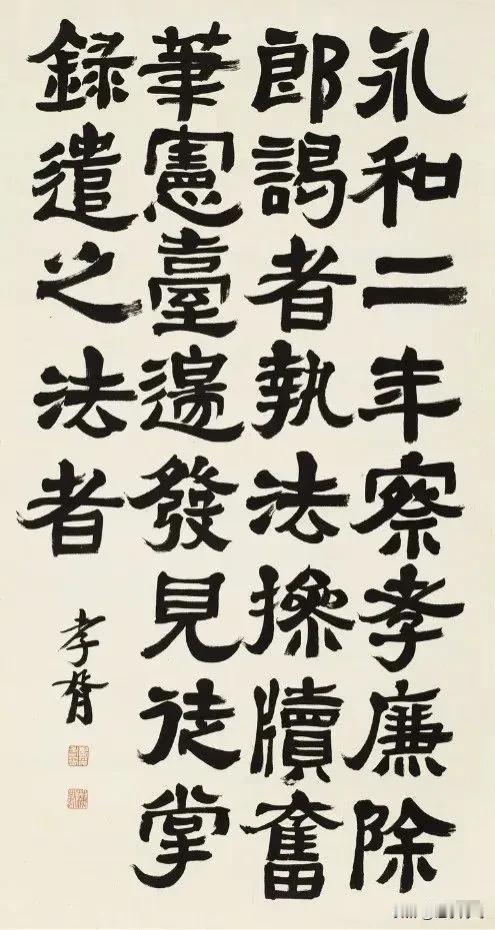 永和二年察孝廉除
郎謁者執法操牘奮
筆憲臺遏發見徒掌
錄遣之法者
孝胥